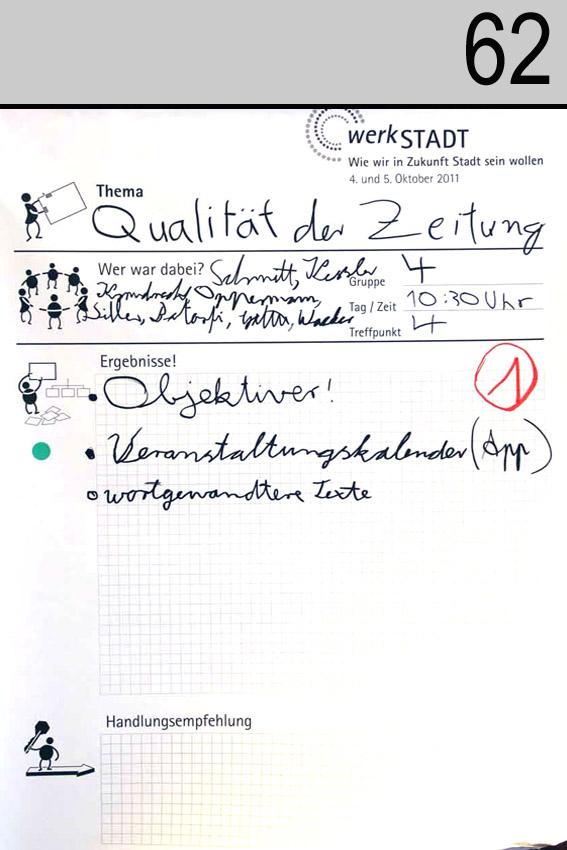 62
werkSTADT
Wie wir in Zukunft Stadt sein wollen
4. und 5. Oktober 2011
Thema
Qualität der Zeitung
Wer war dabei? Schmitt, Kessler
Oppermann,
Gruppe 4
Tag / Zeit 10:30 Uhr
Treffpunkt 4
Ergebnisse!
1
• Objektiver!
• Veranstaltungskalender (App)
• wortgewandtere Texte
Handlungsempfehlung